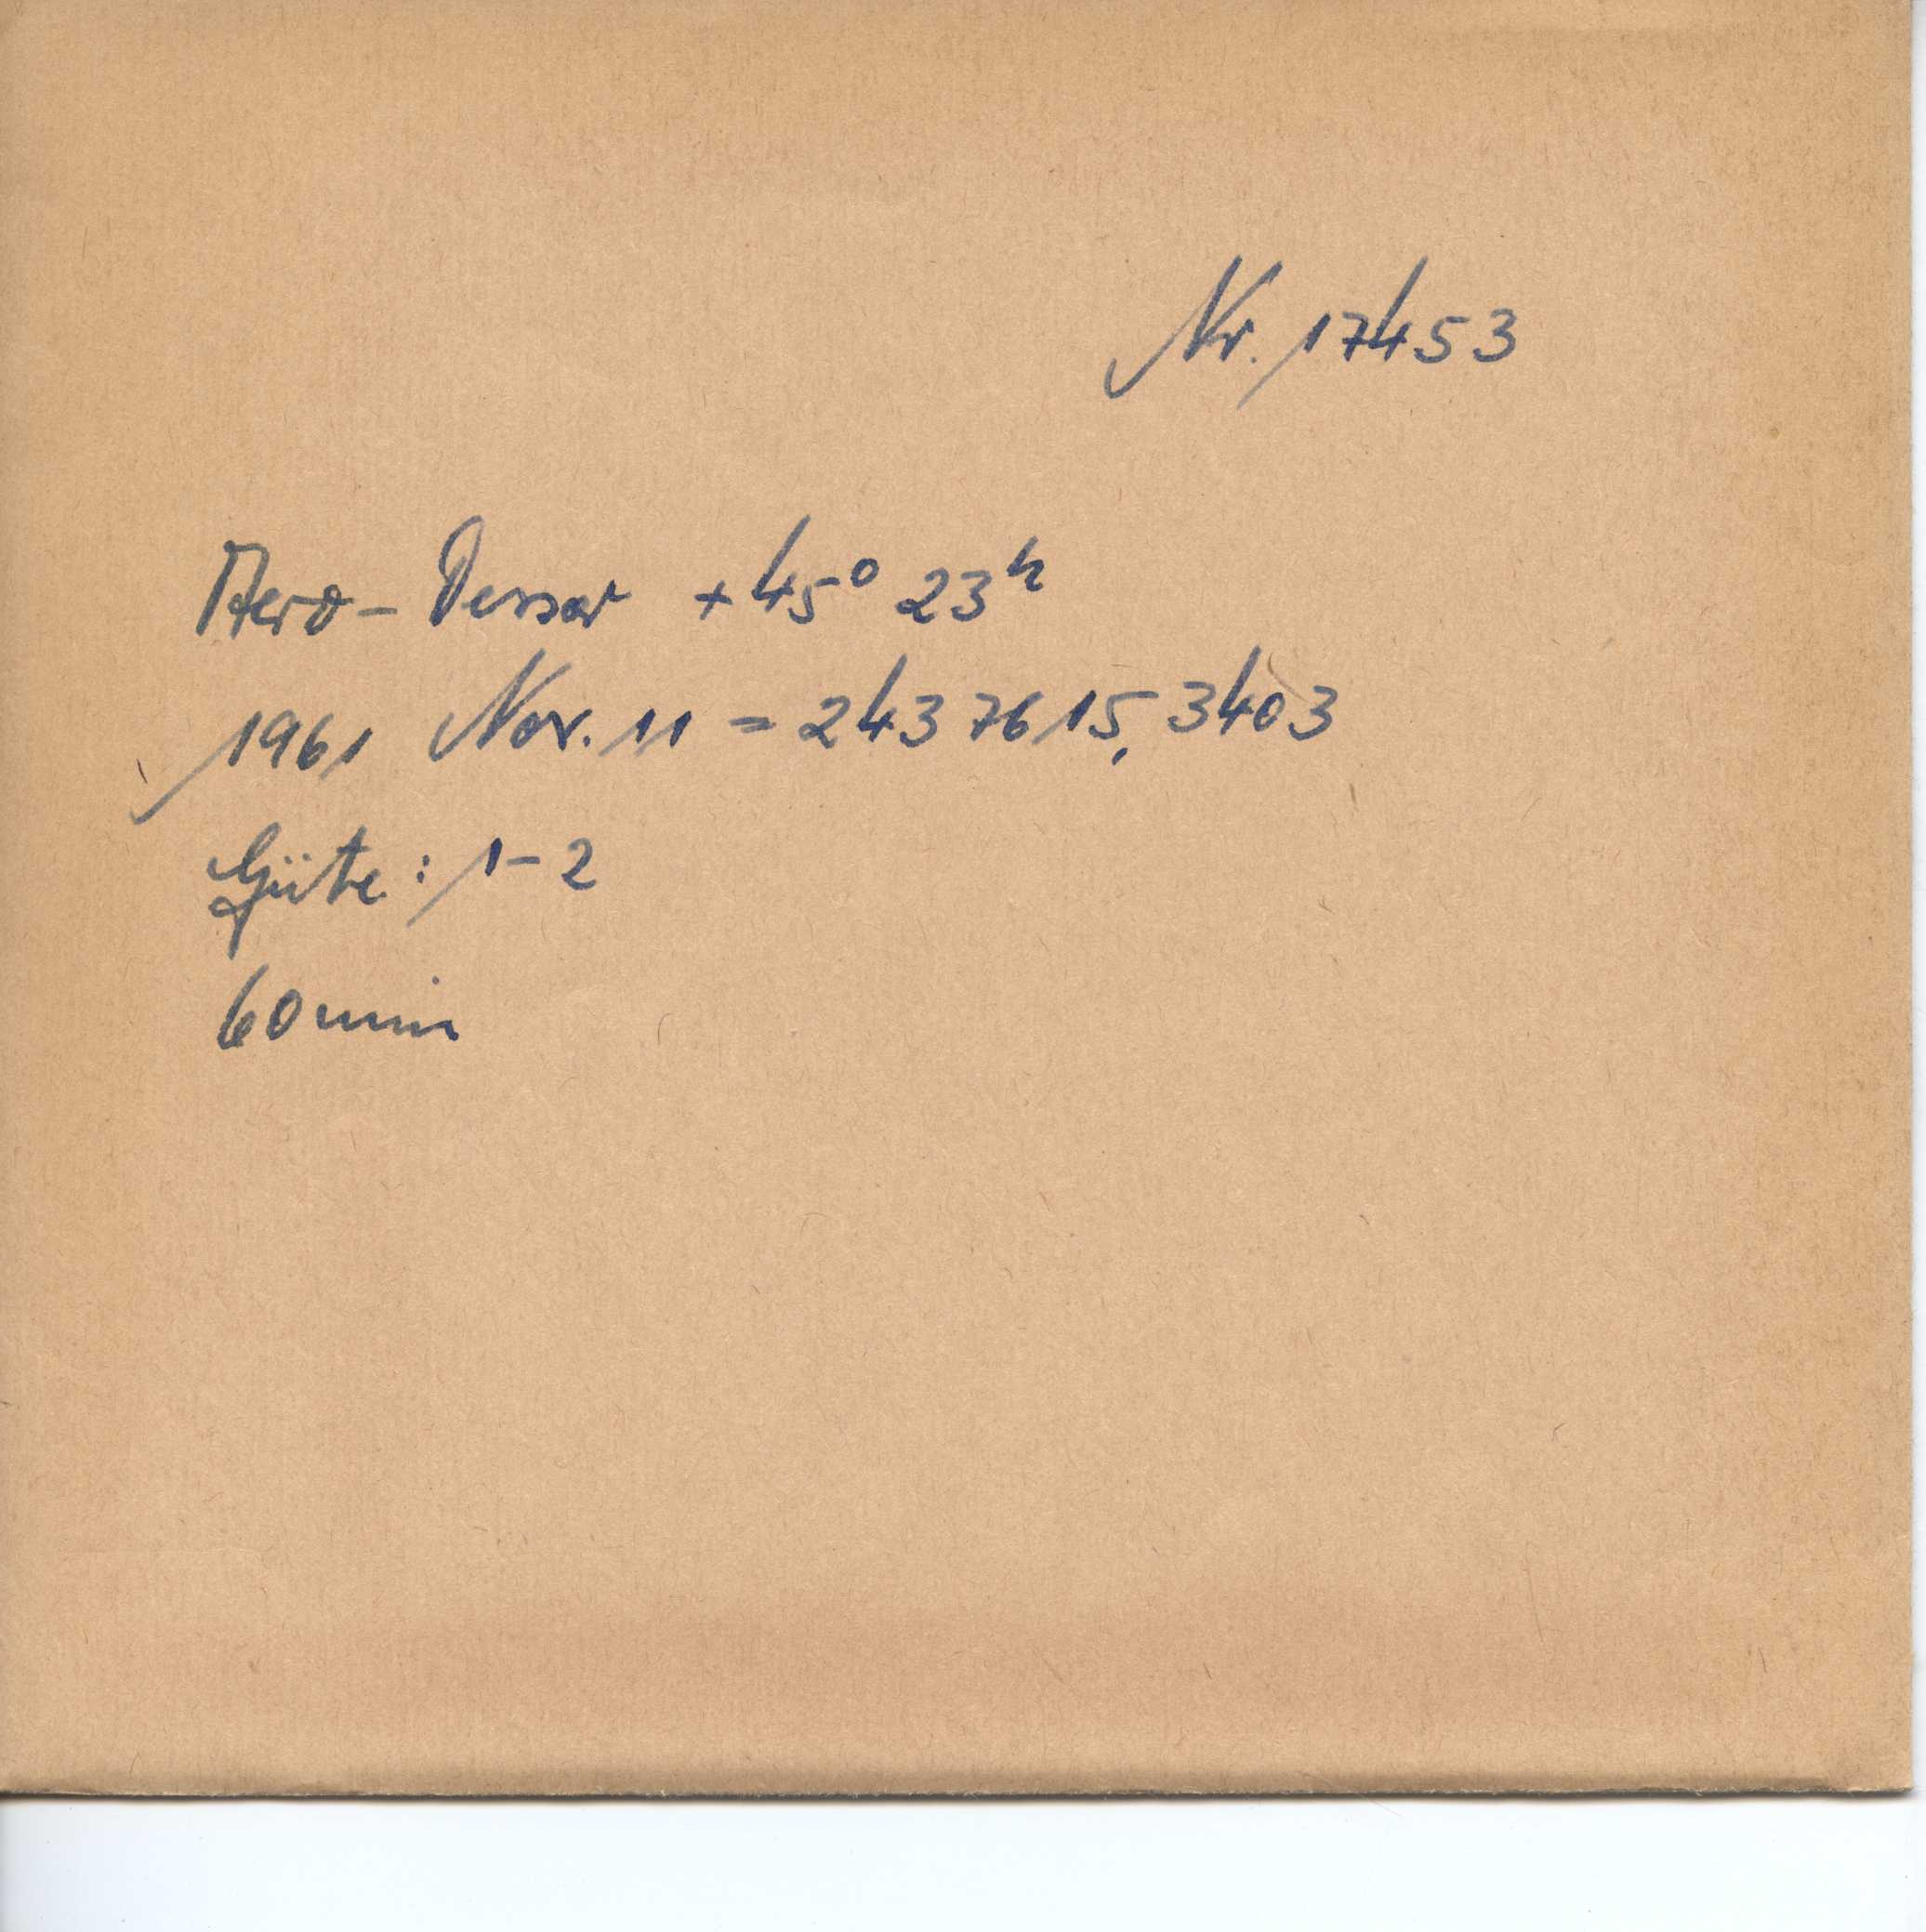 Nr. 17453
Aero-Tessar +45° 23ʰ
1961 Nov. 11 = 2437615,3403
Güte: 1-2
60 min